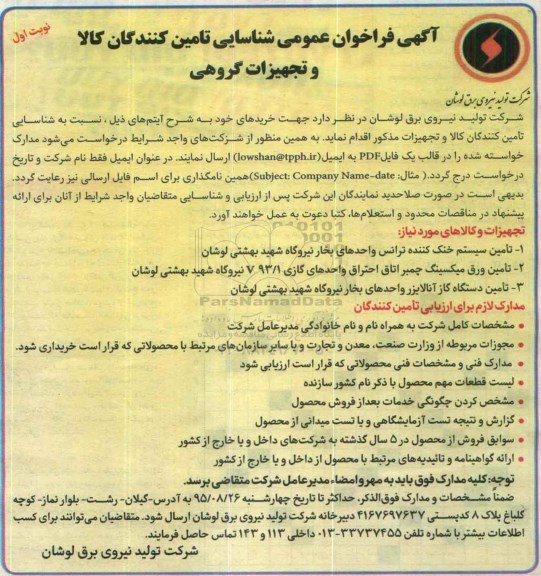 نوبت اول
آگهی فراخوان عمومی شناسایی تامین کنندگان کالا
و تجهیزات گروهی
شرکت تولید نیروی برق لوشان
شرکت تولید نیروی برق لوشان در نظر دارد جهت خریدهای خود به شرح آیتم‌های ذیل ، نسبت به شناسایی
تامین کنندگان کالا و تجهیزات مذکور اقدام نماید. به همین منظور از شرکت‌های واجد شرایط درخواست می‌شود مدارک
خواسته شده را در قالب یک فایلPDF به ایمیل(lowshan@tpph.ir) ارسال نمایند. در عنوان ایمیل فقط نام شرکت و تاریخ
درخواست درج گردد.( مثال: Subject: Company Name-date)همین نامگذاری برای اسم فایل ارسالی نیز رعایت گردد.
بدیهی است در صورت صلاحدید نمایندگان این شرکت پس از ارزیابی و شناسایی متقاضیان واجد شرایط از آنان برای ارائه
پیشنهاد در مناقصات محدود و استعلام‌ها، کتبا دعوت به عمل خواهند آورد.
تجهیزات و کالاهای مورد نیاز:
۱- تامین سیستم خنک کننده ترانس واحدهای بخار نیروگاه شهید بهشتی لوشان
۲- تامین ورق میکسینگ چمبر اتاق احتراق واحدهای گازی V ۹۳/۱ نیروگاه شهید بهشتی لوشان
۳- تامین دستگاه گاز آنالایزر واحدهای بخار نیروگاه شهید بهشتی لوشان
ParsNamadData
مدارک لازم برای ارزیابی تأمین کنندگان
● مشخصات کامل شرکت به همراه نام و نام خانوادگی مدیرعامل شرکت
● مجوزات مربوطه از وزارت صنعت، معدن و تجارت و یا سایر سازمان‌های مرتبط با محصولاتی که قرار است خریداری شود.
● مدارک فنی و مشخصات فنی محصولاتی که قرار است ارزیابی شود
● لیست قطعات مهم محصول با ذکر نام کشور سازنده
● مشخص کردن چگونگی خدمات بعداز فروش محصول
● گزارش و نتیجه تست آزمایشگاهی و یا تست میدانی از محصول
● سوابق فروش از محصول در ۵ سال گذشته به شرکت‌های داخل و یا خارج از کشور
● ارائه گواهینامه و تائیدیه‌های مرتبط با محصول از داخل و یا خارج از کشور
توجه: کلیه مدارک فوق باید به مهر و امضاء مدیرعامل شرکت متقاضی برسد.
ضمناً مشخصات و مدارک فوق‌الذکر، حداکثر تا تاریخ چهارشنبه ۹۵/۰۸/۲۶ به آدرس-گیلان- رشت- بلوار نماز- کوچه
گلباغ پلاک ۸ کدپستی ۴۱۶۷۶۹۷۶۳۷ دبیرخانه شرکت تولید نیروی برق لوشان ارسال شود. متقاضیان می‌توانند برای کسب
اطلاعات بیشتر با شماره تلفن ۳۳۷۳۷۴۵۵-۰۱۳ داخلی ۱۱۳ و ۱۴۳ تماس حاصل فرمایند.
شرکت تولید نیروی برق لوشان